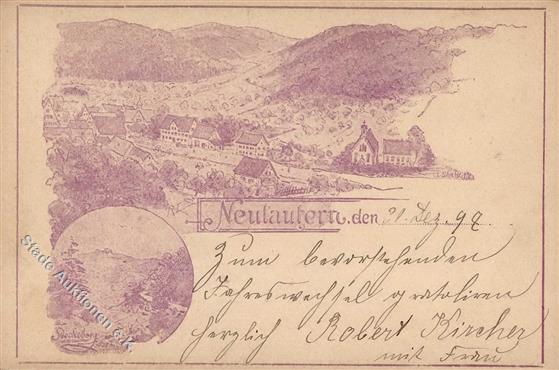 Neulautern, den 31. Dez. 99.
Zum bevorstehenden
Jahreswechsel gratoliren
herzlich Robert Kircher
mit Frau
Stade Auktionen e.K.